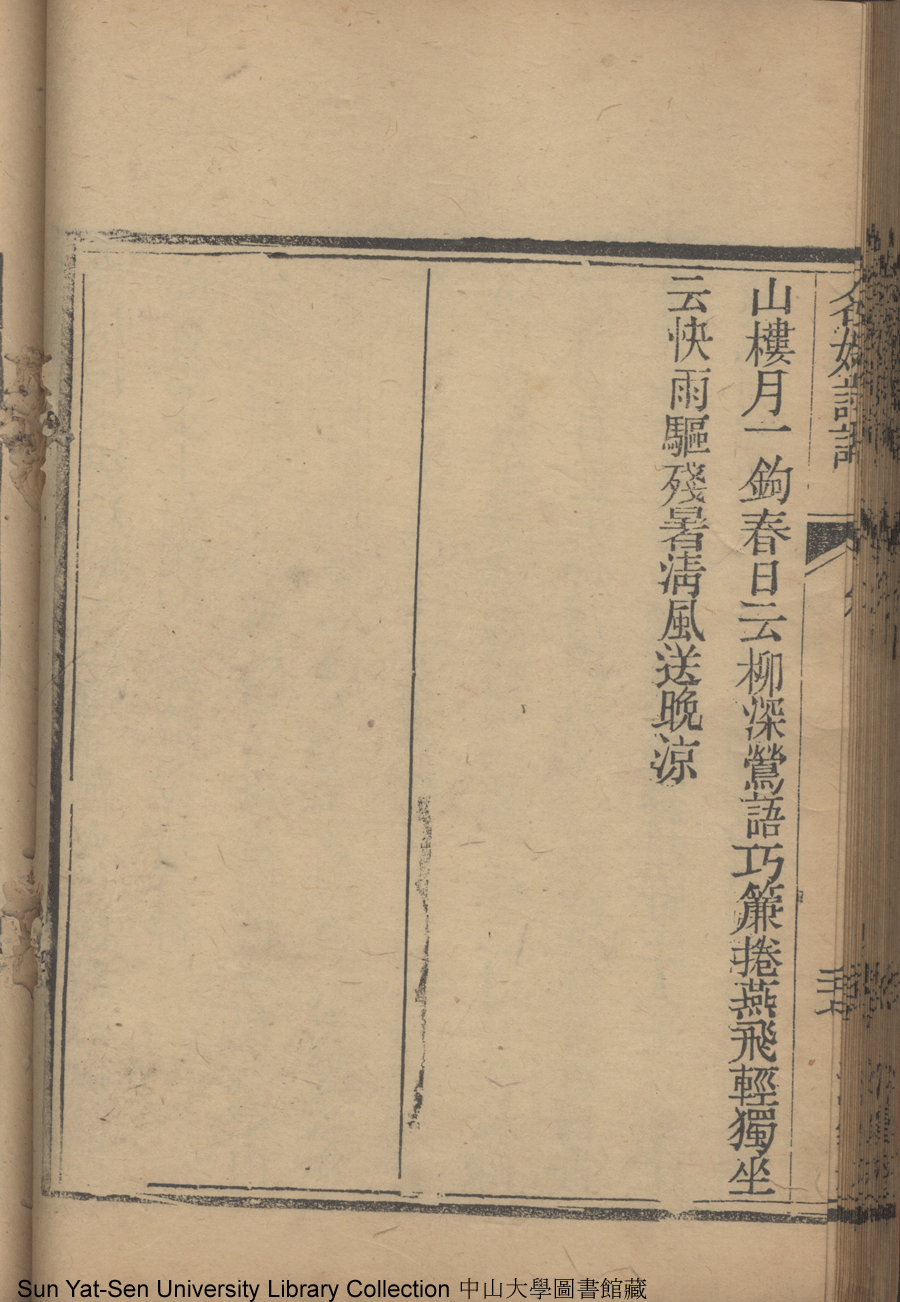 名媛詩話
山樓月一鉤春日云柳深鶯語巧簾捲燕飛輕獨坐
云快雨驅殘暑清風送晚涼
Sun Yat-Sen University Library Collection 中山大學圖書館藏